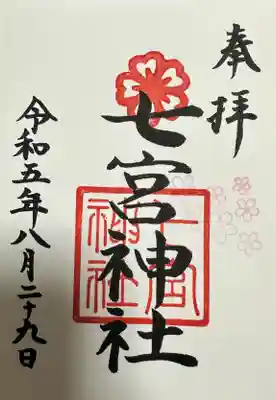 奉拝
七宮神社
七宮
神社
令和五年八月二十九日